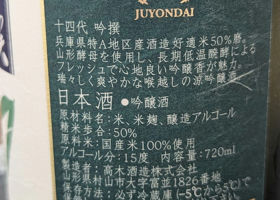 JUYONDAI
十四代 吟撰
兵庫県特A地区産酒造好適米50%磨。
山形酵母を使用し、長期低温醗酵による
フレッシュで心地良い吟醸香が魅力。
瑞々しく爽やかな喉越しの涼吟醸酒
日本酒 ●吟醸酒
原材料名:米、米麹、醸造アルコール
精米歩合:50%
原料米:国産米100%使用
アルコール分:15度 内容量:720ml
製造者:高木酒造株式会社
山形県村山市大字富並1826番地
保存方法:必ず冷蔵庫(-5℃から5℃)で